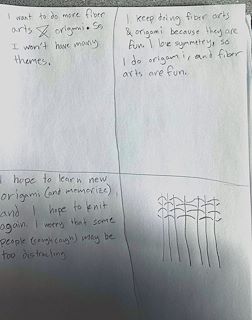 I want to do more fiber
arts & origami. So,
I won't have many
themes.
I keep doing fiber arts
& origami because they are
fun. I love symmetry, so
I do origami, and fiber
arts are fun.
I hope to learn new
origami (and memorize),
and I hope to knit
again. I worry that some
people (cough cough) may be
too distracting